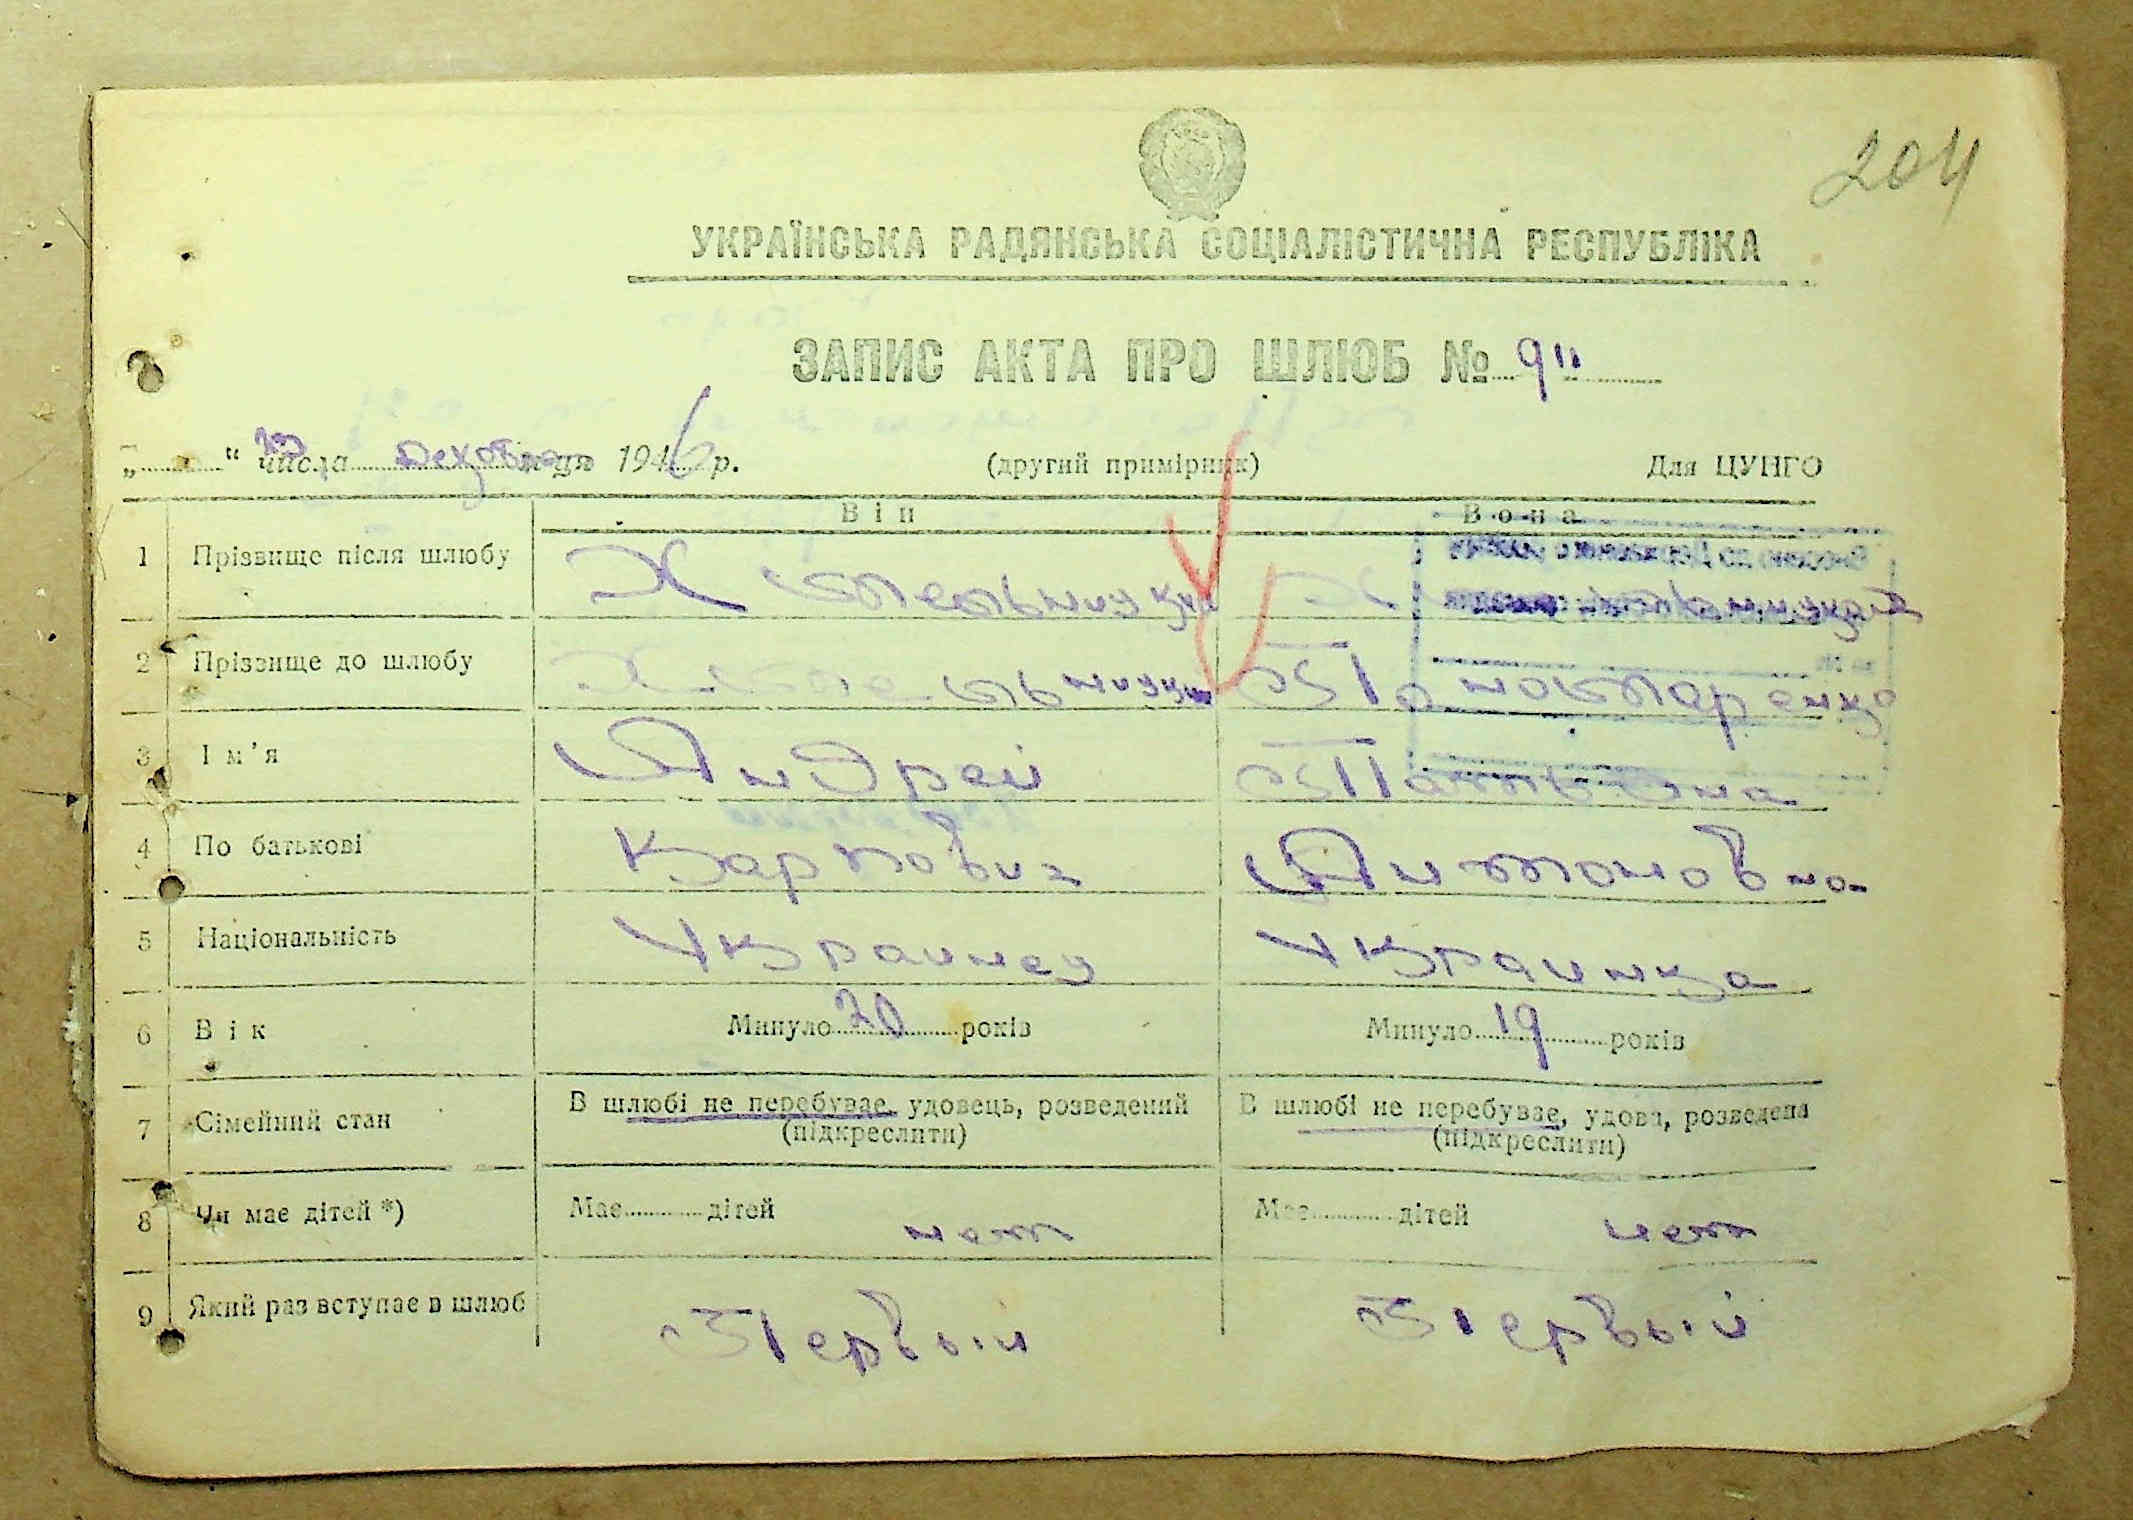 204
УКРАЇНСЬКА РАДЯНСЬКА СОЦІАЛІСТИЧНА РЕСПУБЛІКА
ЗАПИС АКТА ПРО ШЛЮБ № 9"
„ “ числа декабря м-ця 1946 р. (другий примірник) Для ЦУНГО
Він Вона
1 Прізвище після шлюбу Хмельницкий Хмельницкая
2 Прізвище до шлюбу Хмельницкий Пономаренко
3 Ім'я Андрей Татьяна
4 По батькові Карпович Антоновна
5 Національність Украинец Украинка
6 Вік Минуло 20 років Минуло 19 років
7 Сімейний стан В шлюбі не перебуває, удовець, розведений В шлюбі не перебуває, удова, розведена
(підкреслити) (підкреслити)
8 Чи має дітей *) Має дітей нет Має дітей нет
9 Який раз вступає в шлюб Первый Первый